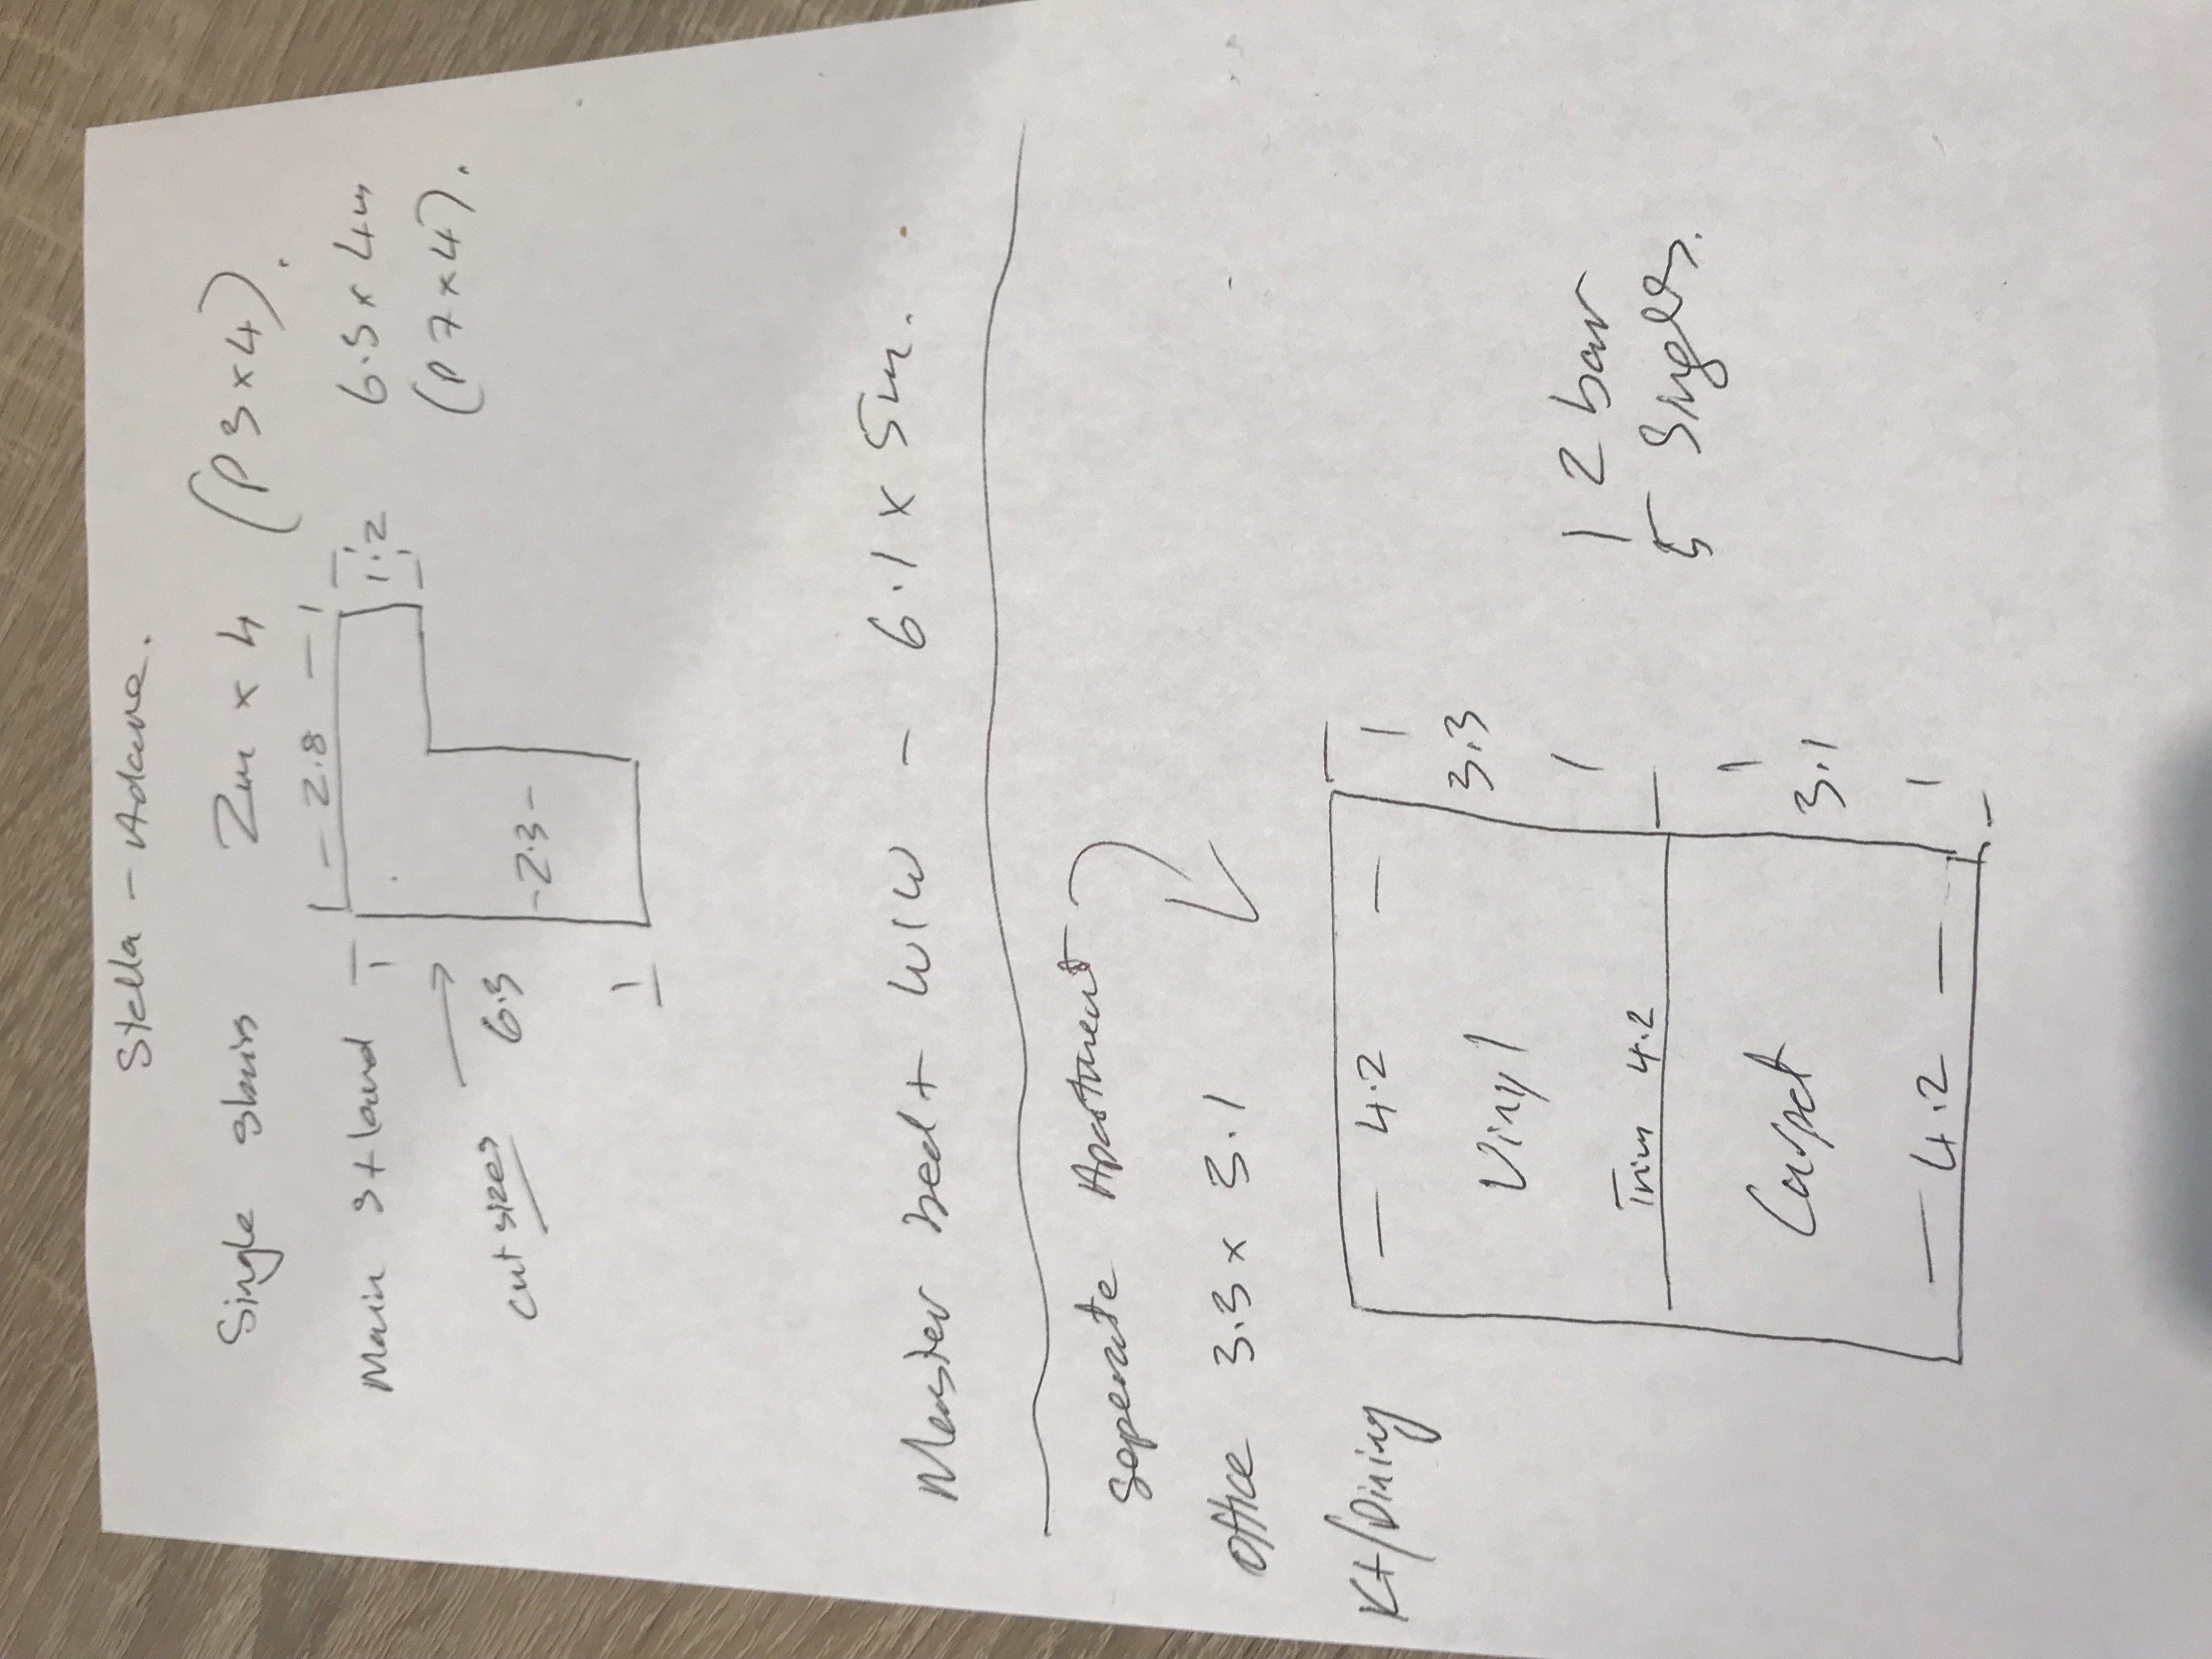 Stella - Adane.
Single stairs 2m x 4 (P 3 x 4).
Main st land 6.5 x 4m
(P 7 x 4).
- 2.8 -
1.2
6.3
-2.3-
cut sizes
Master bed + WIW - 6.1 x 5m.
Seperate Apartment
Office 3.3 x 3.1
Kt/Dining
- 4.2 -
3.3
Vinyl
Trim 4.2
Carpet
3.1
- 4.2 -
1 2 bar
5 Singles.